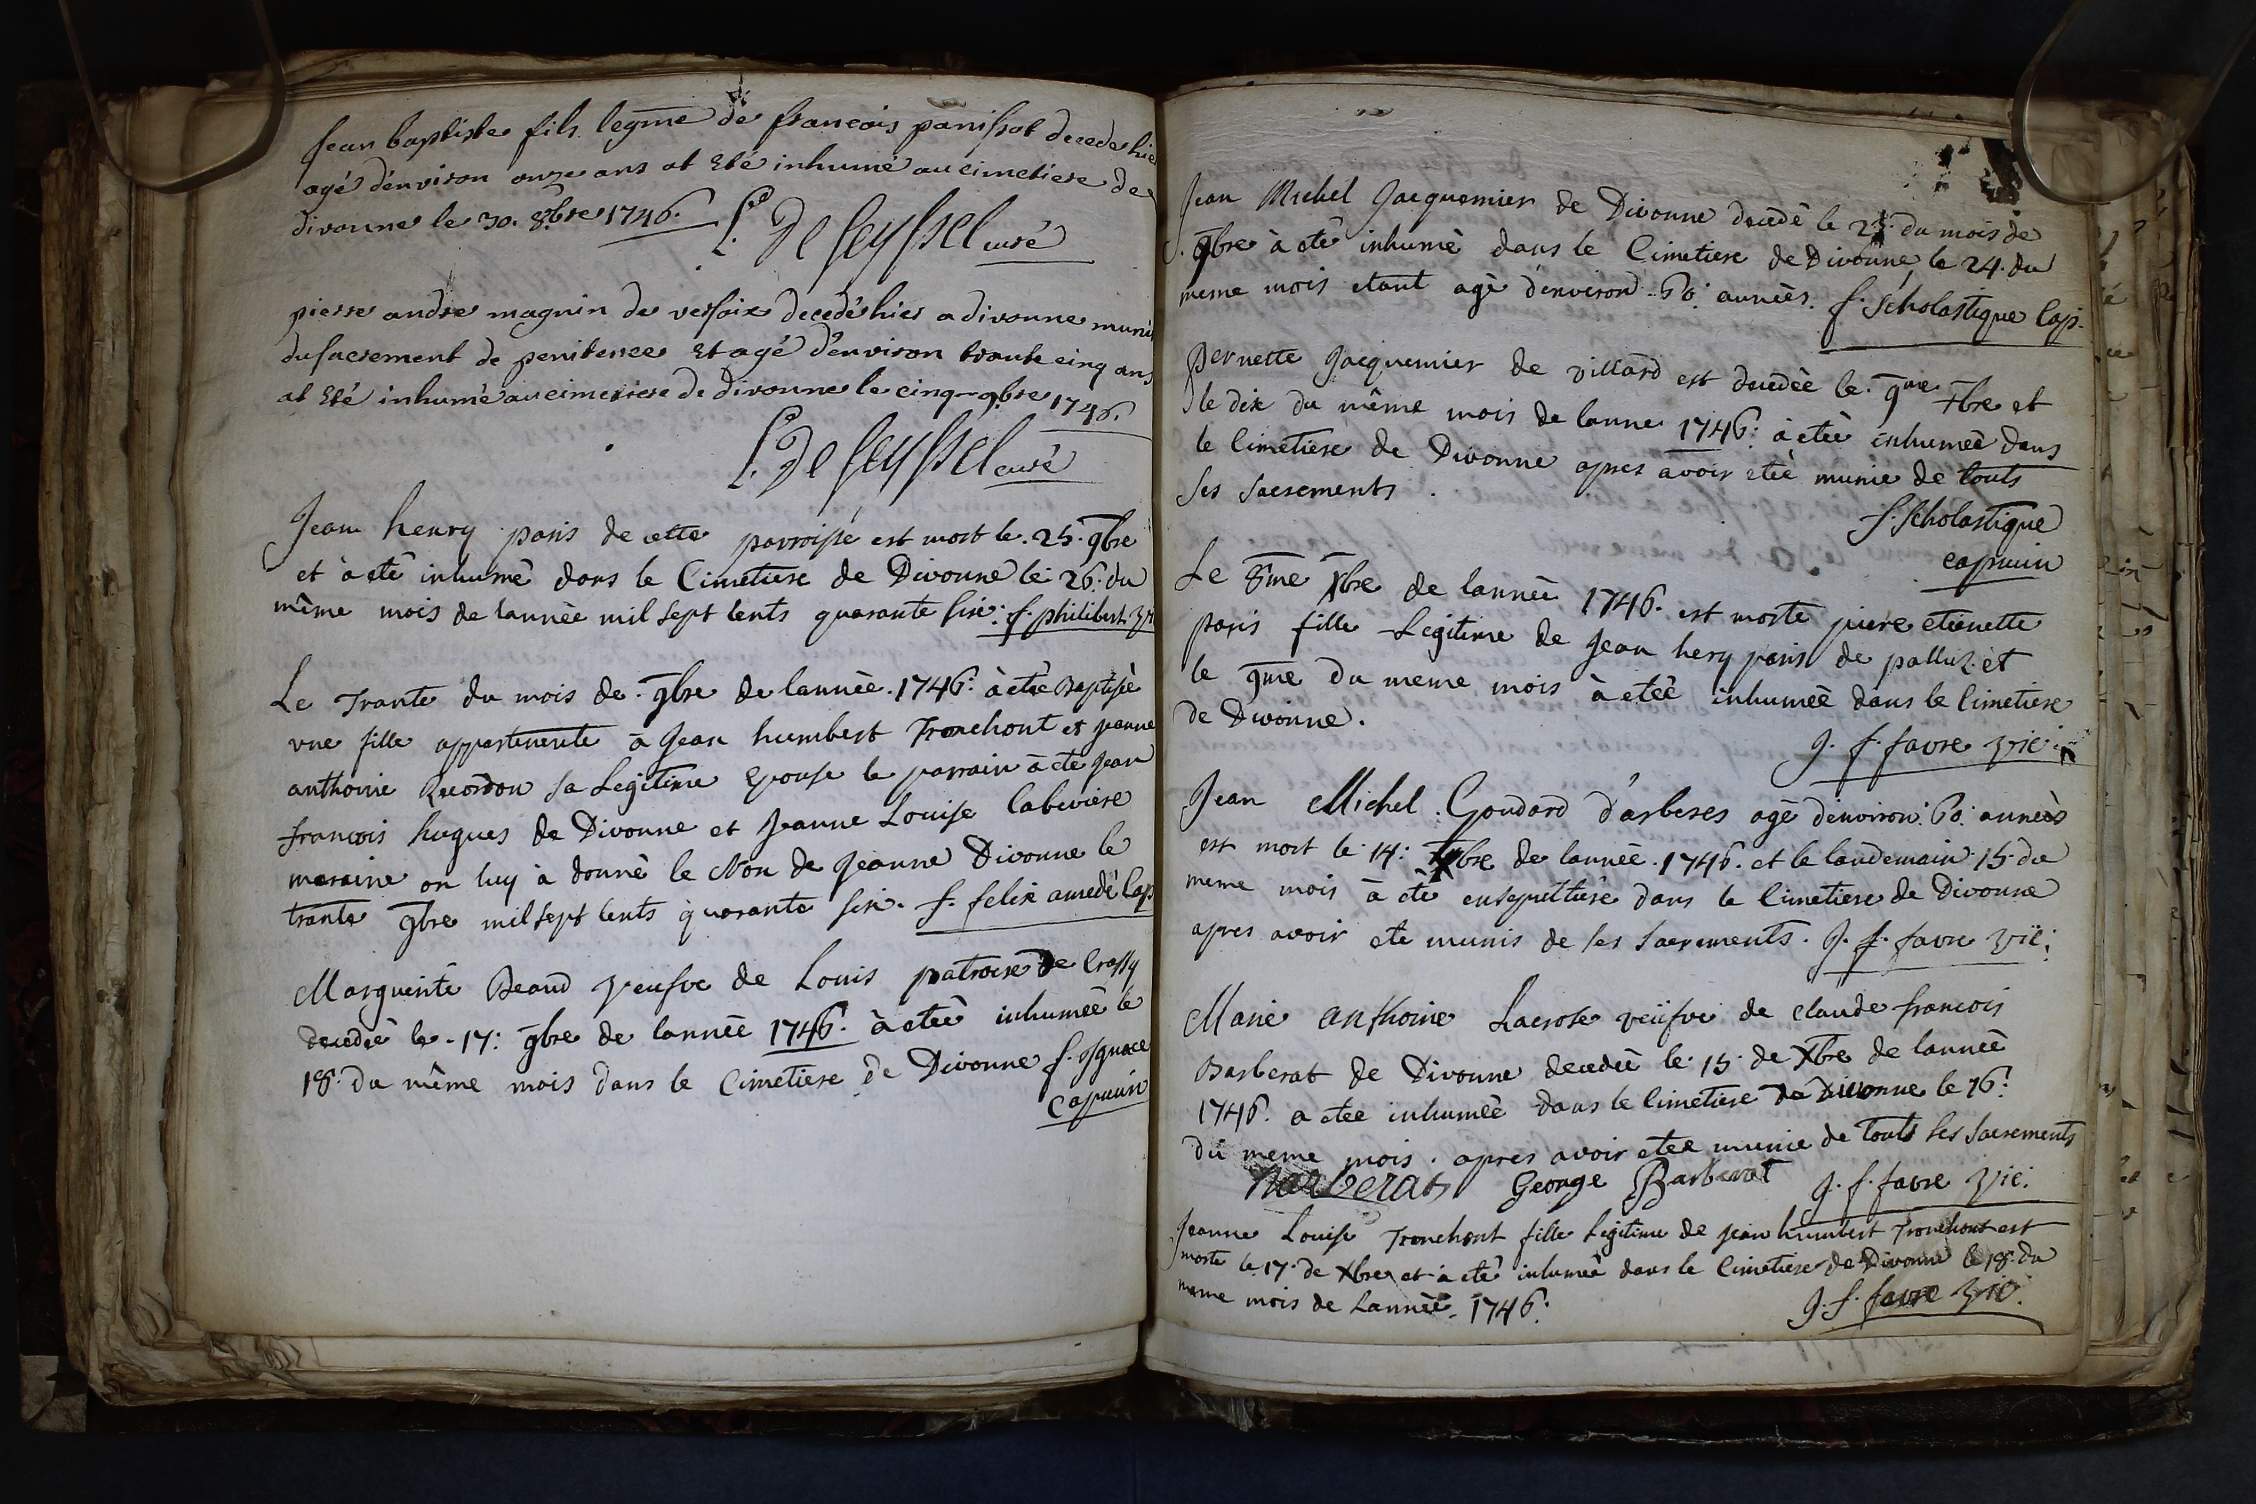 Jean baptiste fils legme de francois panissot decede hier
agé d'environ onze ans at Eté inhumé au cimetiere de
divonne le 30. 8bre 1746.
De Seyssel curé
pierre andre magnin de versoix decedé hier a divonne muni
du sacrement de penitence Et agé d'environ trante cinq ans
at Eté inhumé au cimetiere de divonne le cinq 9bre 1746.
De Seyssel curé
Jean henry paris de cette parroisse est mort le. 25. 9bre
et à eté inhumé dans le Cimetiere de Divonne le 26. du
même mois de lannée mil sept cents quarante six. f. philibert
Le Trante du mois de 9bre de lannée. 1746. à etée Baptisé
vne fille appartenente à Jean humbert Tronchont et jeanne
anthoine Reordon sa Legitime Epouse le parrain à eté Jean
francois hugues de Divonne et Jeanne Louise labeviere
maraine on luy à donné le Non de Jeanne Divonne le
trante 9bre mil sept cents quarante six. f. felix amedé Cap
Marguerite Beaud veufve de Louis patroise de Crassy
decedée le. 17. 9bre de lannée 1746. à etée inhumée le
18. du même mois dans le Cimetiere de Divonne f. Ignace
Capucin
Jean Michel Jacquemier de Divonne decedé le 23. du mois de
9bre à eté inhumé dans le Cimetiere de Divonne le 24. du
meme mois etant agé d'environ 60. années. f. scholastique Cap.
Pernette Jacquemier de villard est decedée le 9me Xbre et
le dix du même mois de lanne 1746. à etée inhumeé dans
le Cimetiere de Divonne apres avoir etée munie de touts
ses sacrements.
f. Scholastique
capucin
Le 8me Xbre de lannée 1746. est morte etienette
paris fille Legitime de Jean hery paris de palluz et
le 9me du meme mois à etée inhumeé dans le Cimetiere
de Divonne.
J. f. favre vic.
Jean Michel Goudard d'arberes agé denviron. 60. années
est mort le 14. Xbre de lannée. 1746. et le landemain 15. du
meme mois à eté dans le Cimetiere de Divonne
apres avoir ete munis de ses sacrements. J. f. favre vic.
Marie anthoine Lacroix veüfve de claude francois
Barberat de Divonne decedée le 15. de Xbre de lannée
1746. a etee inhumée dans le Cimetiere de Divonne le 16.
du meme mois. apres avoir etee munie de touts ses sacrements
Barberat George Barberat J. f. favre vic.
Jeanne Louise Tronchont fille Legitime de jean humbert Tronchont est
morte le 17. de Xbre et à eté inhumeé dans le Cimetiere de Divonne le 18. du
meme mois de Lannée. 1746.
J. f. favre vic.